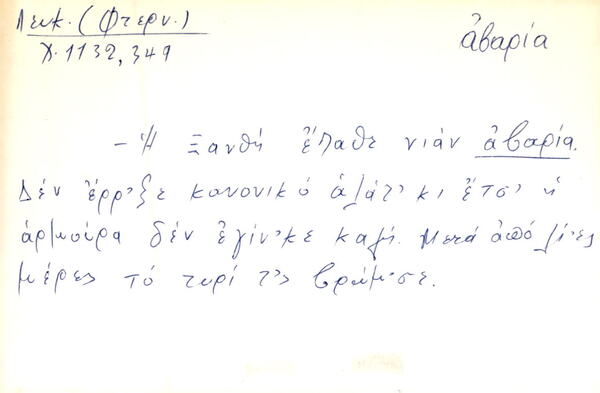 Λευκ. (Φτερν.)
Χ. 1132, 349
ἀβαρία
- Ἡ Ξανθή ἔπαθε νιάν ἀβαρία.
Δέν ἔρριξε κανονικό ἁλάτ' κι ἔτσ' ἡ
ἁρμούρα δέν ἐγίν'κε καλή. Μετά ἀπό λίες
μέρες τό τυρί τ'ς βρώμ'σε.